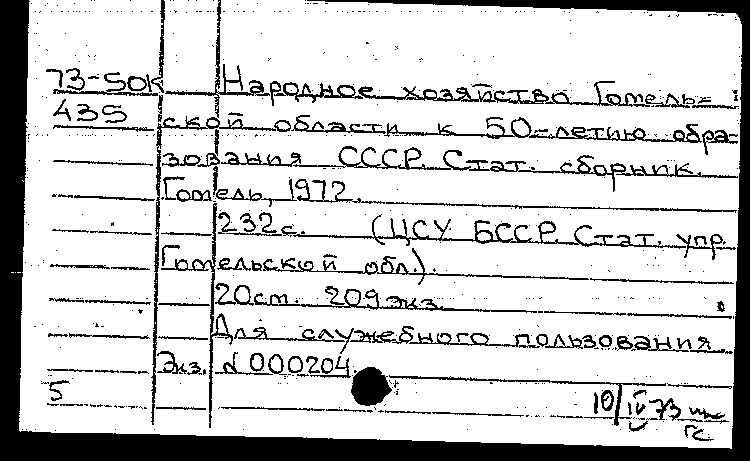 73-50к Народное хозяйство Гомель=
435 ской области к 50-летию обра=
зования СССР. Стат. сборник.
Гомель, 1972.
232с. (ЦСУ БССР. Стат. упр.
Гомельской обл.).
20см. 209 экз.
Для служебного пользования
Экз. № 000204
5
10/IV 73
гс